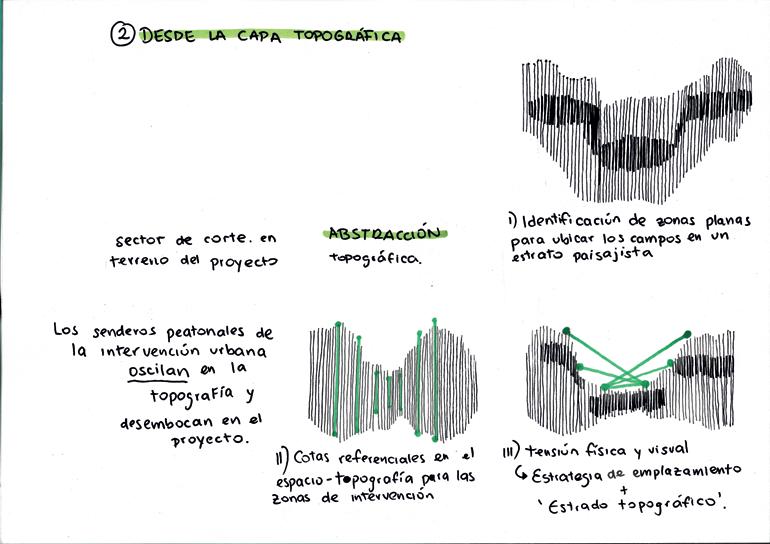 ② DESDE LA CAPA TOPOGRÁFICA
I) Identificación de zonas planas
para ubicar los campos en un
estrato paisajista
sector de corte. en
terreno del proyecto
ABSTRACCIÓN
topográfica.
Los senderos peatonales de
la intervención urbana
oscilan en la
topografía y
desembocan en el
proyecto.
II) Cotas referenciales en el
espacio-topografía para las
zonas de intervención
III) Tensión física y visual
↳ Estrategia de emplazamiento
+
'Estrado topográfico'.